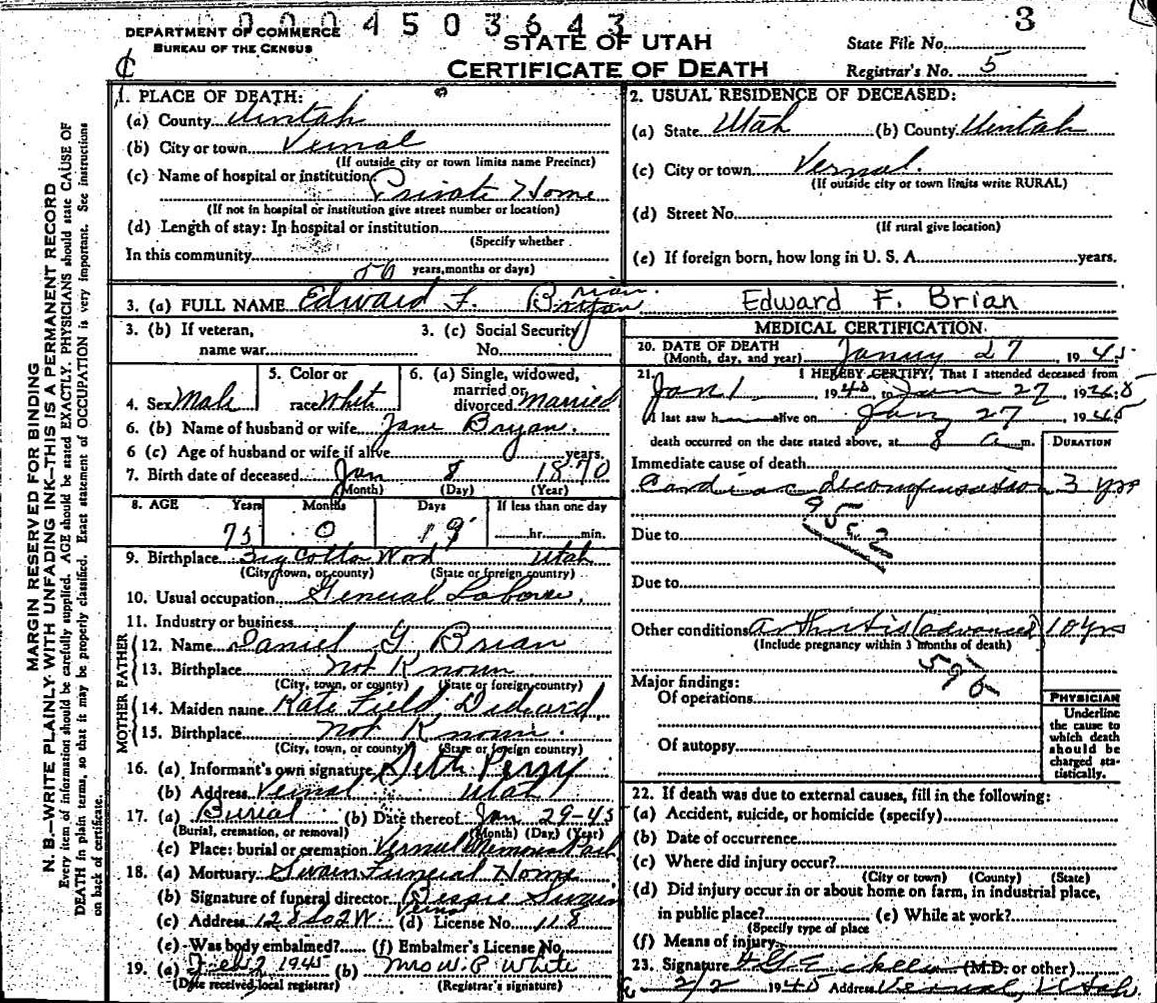 00004503643
DEPARTMENT OF COMMERCE
BUREAU OF THE CENSUS
STATE OF UTAH
CERTIFICATE OF DEATH
3
State File No.
Registrar's No. 5
MARGIN RESERVED FOR BINDING
N. B.—WRITE PLAINLY WITH UNFADING INK—THIS IS A PERMANENT RECORD
Every item of information should be carefully supplied. AGE should be stated EXACTLY. PHYSICIANS should state CAUSE OF
DEATH in plain terms, so that it may be properly classified. Exact statement of OCCUPATION is very important. See instructions
on back of certificate.
1. PLACE OF DEATH:
(a) County Uintah
(b) City or town Vernal
(If outside city or town limits name Precinct)
(c) Name of hospital or institution:
Private Home
(If not in hospital or institution give street number or location)
(d) Length of stay: In hospital or institution
(Specify whether
In this community
56 years, months or days)
2. USUAL RESIDENCE OF DECEASED:
(a) State Utah (b) County Uintah
(c) City or town Vernal.
(If outside city or town limits write RURAL)
(d) Street No.
(If rural give location)
(e) If foreign born, how long in U. S. A. years.
3. (a) FULL NAME Edward F. Bryan Brian. Edward F. Brian
3. (b) If veteran,
name war
3. (c) Social Security
No.
4. Sex Male
5. Color or
race White
6. (a) Single, widowed,
married or
divorced Married
6. (b) Name of husband or wife Jane Bryan.
6 (c) Age of husband or wife if alive years.
7. Birth date of deceased Jan 8 1870
(Month) (Day) (Year)
8. AGE Years Months Days If less than one day
75 0 19 hr. min.
9. Birthplace Big Cotton Wood Utah
(City, town, or county) (State or foreign country)
10. Usual occupation General Laborer.
11. Industry or business
FATHER
12. Name Daniel G. Brian
13. Birthplace Not Known
(City, town, or county) (State or foreign country)
MOTHER
14. Maiden name Kate Field
15. Birthplace Not Known.
(City, town, or county) (State or foreign country)
16. (a) Informant's own signature Seth Perry
(b) Address Vernal Utah
17. (a) Burial (b) Date thereof Jan 29-45
(Burial, cremation, or removal) (Month) (Day) (Year)
(c) Place: burial or cremation Vernal Memorial Park
18. (a) Mortuary Swain Funeral Home
(b) Signature of funeral director Bessie Swain
(c) Address 128 So 2 W. Vernal (d) License No. 118
(e) Was body embalmed? (f) Embalmer's License No.
19. (a) Feb 2 1945 (b) Mrs W. P. White
(Date received local registrar) (Registrar's signature)
MEDICAL CERTIFICATION
20. DATE OF DEATH
(Month, day, and year) 27 1945
21. I HEREBY CERTIFY, That I attended deceased from
Jan 1 1945 to Jan 27 1945
I last saw h alive on Jan 27 1945
death occurred on the date stated above, at 8 a m.
DURATION
Immediate cause of death
Cardiac decompensation 3 yrs
95c.2
Due to
Due to
Other conditions Arthritis (advanced) 10 yrs
(Include pregnancy within 3 months of death)
59b
Major findings:
Of operations
Of autopsy
PHYSICIAN
Underline
the cause to
which death
should be
charged sta-
tistically.
22. If death was due to external causes, fill in the following:
(a) Accident, suicide, or homicide (specify)
(b) Date of occurrence
(c) Where did injury occur?
(City or town) (County) (State)
(d) Did injury occur in or about home on farm, in industrial place,
in public place? (e) While at work?
(Specify type of place
(f) Means of injury
23. Signature (M.D. or other)
2/2 1945 Address Vernal, Utah.